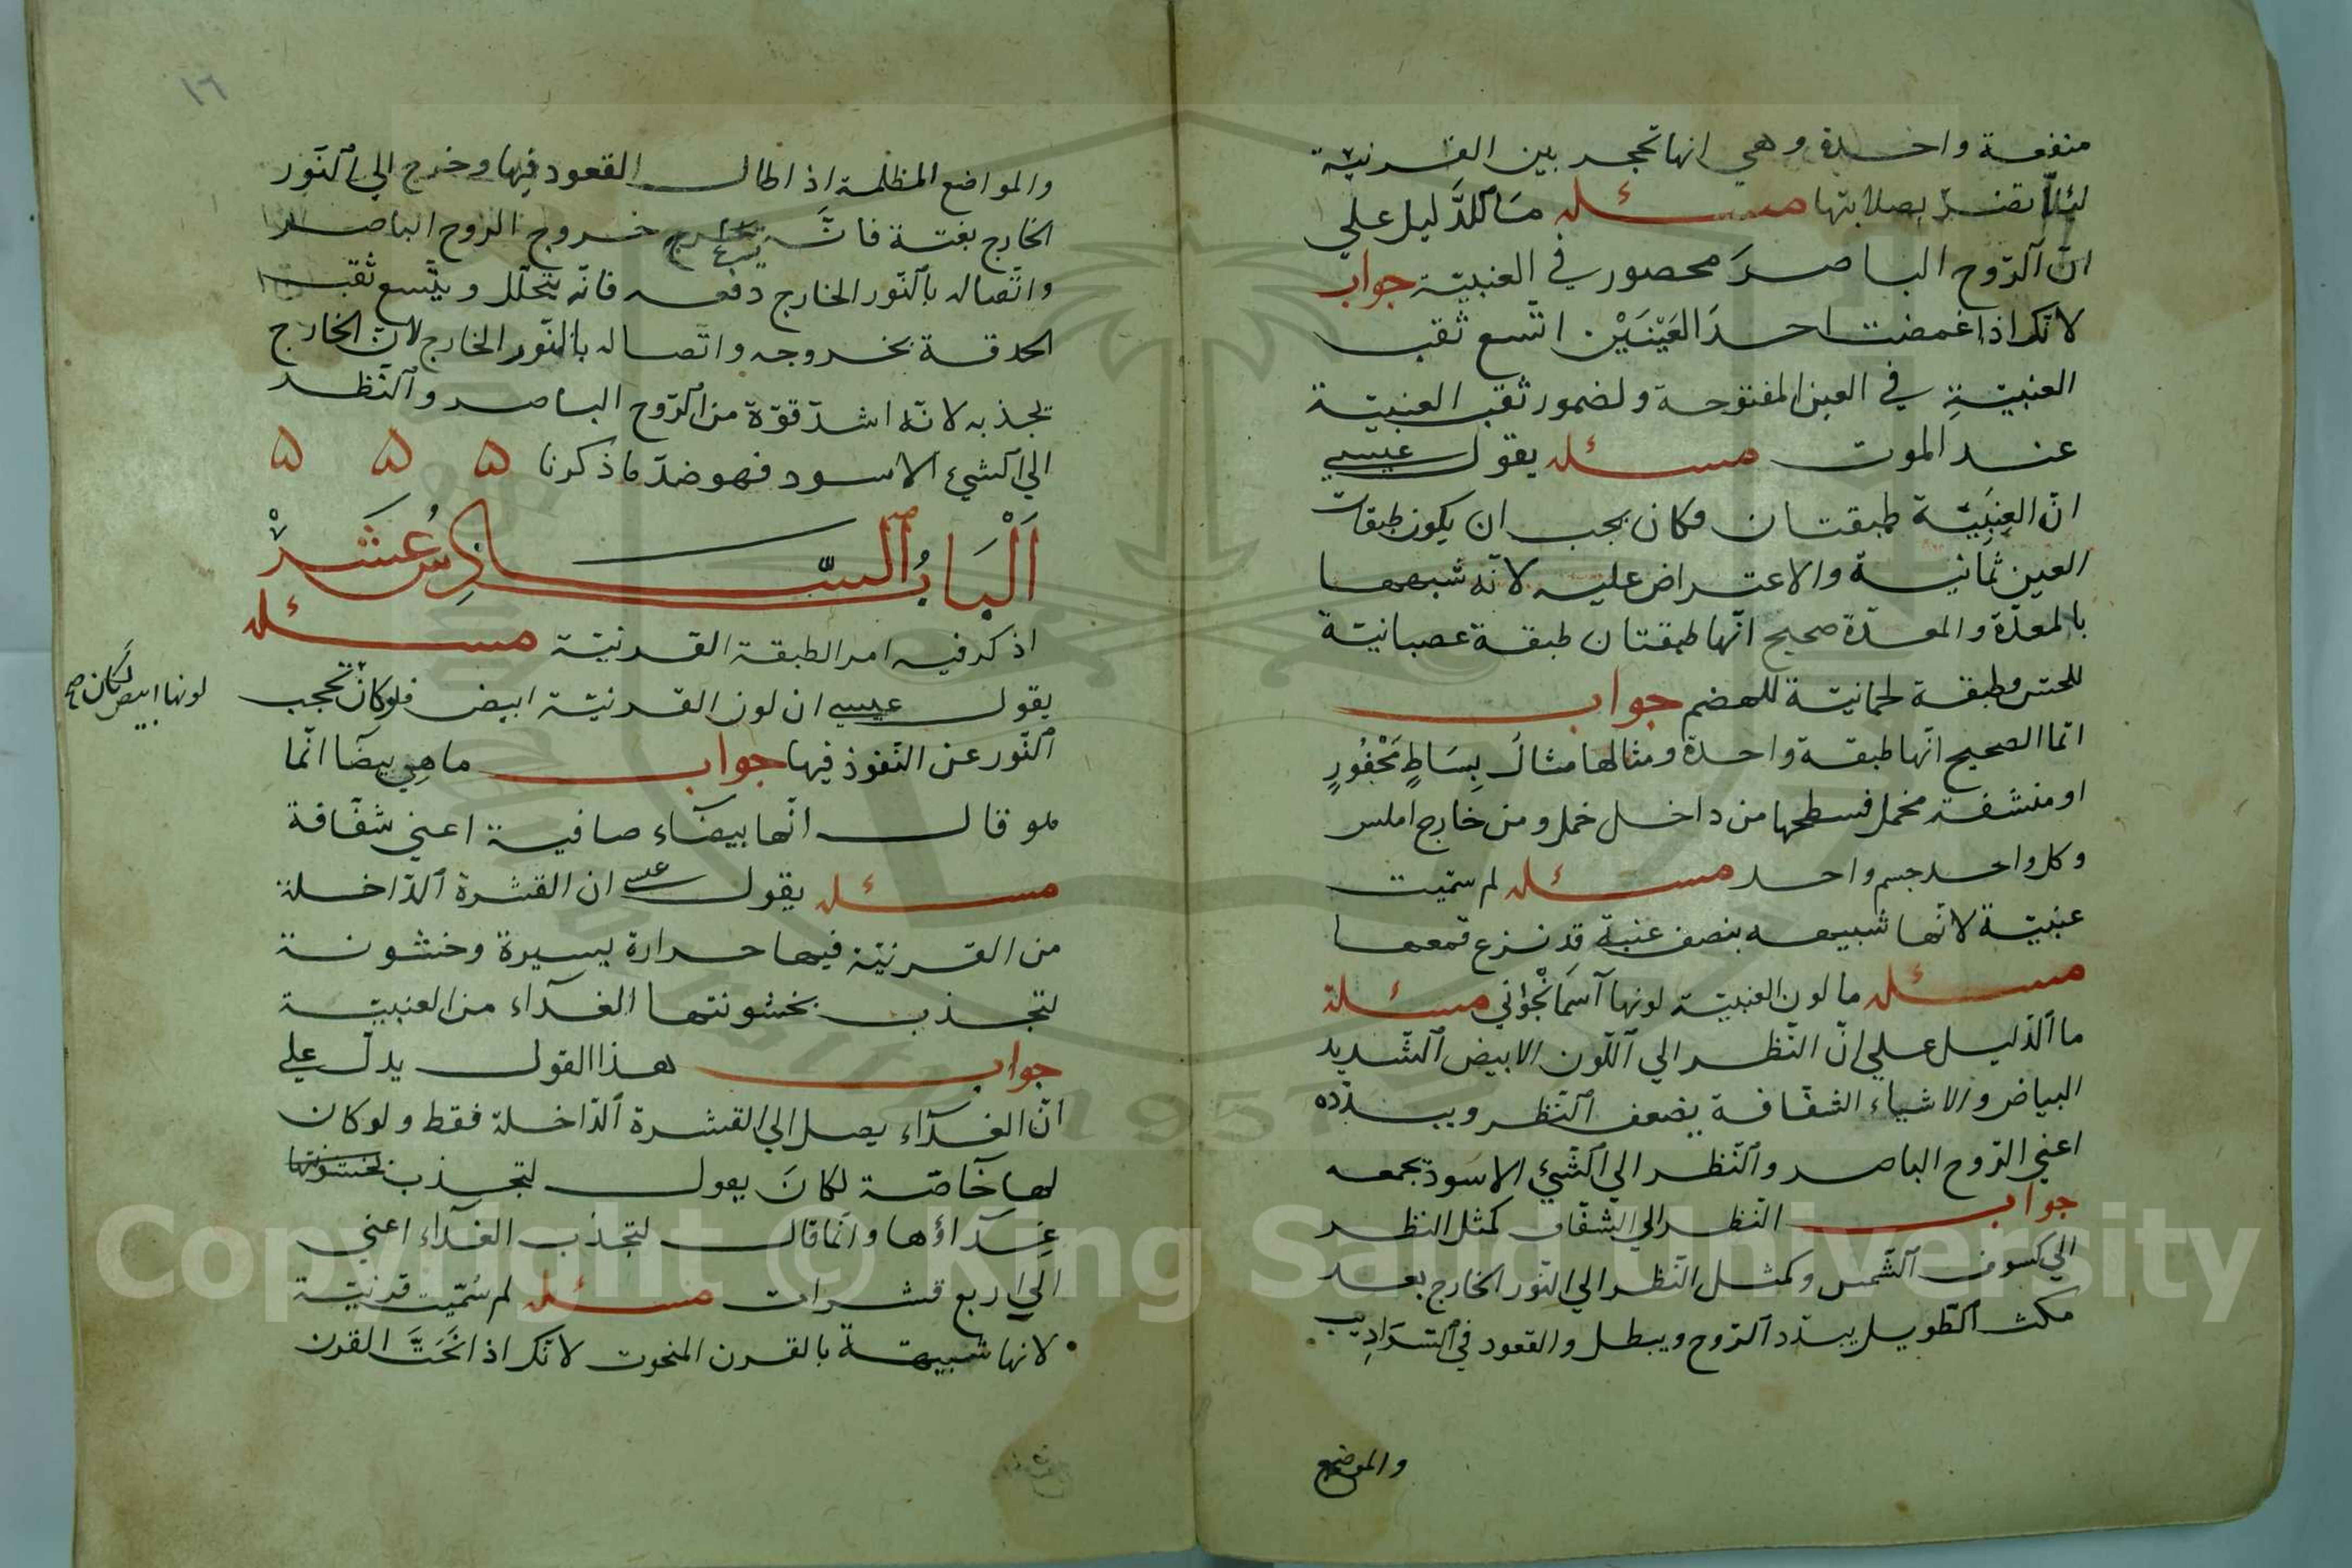 منفعة واحدة وهي انها تحجر بين القرنيّة
لئلّا تضرّ بصلابتها مسئله مَا ٱلدَّليل علي
انّ ٱلرّوح الباصرَ محصور في العنبيّة جواب
لانّك اذا غمضت احدَ العَيْنَيْن اتّسع ثقب
العنبيّةِ في العين المفتوحة ولضمور ثقب العنبيّة
عند الموت مسئله يقول عيسي
انّ العِنَبيّة طبقتان فكان يجب ان يكون طبقات
العين ثمانية والاعتراض عليه لانّه شبهها
بالمعدّة والمعدّة صحيح انّها طبقتان طبقة عصبانيّة
للحسّ وطبقة لحمانيّة للهضم جواب
انّما الصحيح انّها طبقة واحدة ومثالها مثال بِسَاطٍ مَحْفُورٍ
او منشفة مخمل فسطحها من داخل خمل ومن خارج املس
وكل واحد جسم واحد مسئله لم سمّيت
عنبيّة لانّها شبيهه بنصف عنبة قد نزع قمعها
مسئله ما لون العنبيّة لونها آسمَانْجُوني مسئلة
ما ٱلدّليل علي انّ النّظر الي ٱللّون الابيض ٱلشّديد
البياض والاشياء الشفّافة يضعف ٱلنّظر ويبدّده
اعني الرّوح الباصر وٱلنّظر الي ٱلشّيئ الاسود يجمعه
جواب النّظر الي الشفّاف كمثل النظر
الي كسوف ٱلشّمس وكمثل النّظر الي النّور الخارج بعد
مكث ٱلطّويل يبدّد ٱلرّوح ويبطل والقعود في ٱلسّرَادِيب
والموضع
١٦
والمواضع المظلمة اذا طال القعود فيها وخرج الي ٱلنّور
الخارج بغتة فانَّه خروج الروح الباصر
واتّصاله بٱلنّور الخارج دفعه فانّه يتحلّل ويتّسع ثقب
الحدقة بخروجه واتّصاله بالنّور الخارج لانّ الخارج
يجذبه لانّه اشدّ قوّة من ٱلرّوح الباصر وٱلنّظر
الي ٱلشيء الاسود فهو ضدّ ما ذكرنا ه ه ه
اَلْبَابُ ٱلسَّادِسُ عَشَرْ
اذكر فيه امر الطبقة القرنيّة مسئله
يقول عيسي ان لون القرنيّة ابيض فلو كان تحجب
لونها ابيض لكان صح
ٱلنّور عن النّفوذ فيها جواب ما هي بيضَا انّما
هو قال انّها بيضآء صافية اعني شفّافة
مسئله يقول عيسي ان القشرة ٱلدّاخلة
من القرنيّة فيها حرارة يسيرة وخشونة
لتجذب بخشونتها الغدآء من العنبيّة
جواب هذا القول يدلّ علي
انّ الغدآء يصل الي القشرة ٱلدّاخلة فقط ولو كان
لها خاصّة لكانَ يقول لتجذب بخشونتها
غِدَآؤها وانّما قال لتجذب الغدآء اعني
الي اربع قشرات مسئله لم سُمّيت قرنيّة
لانها شبيهة بالقرن المنحوت لانّك اذا نَحَتَّ القرن